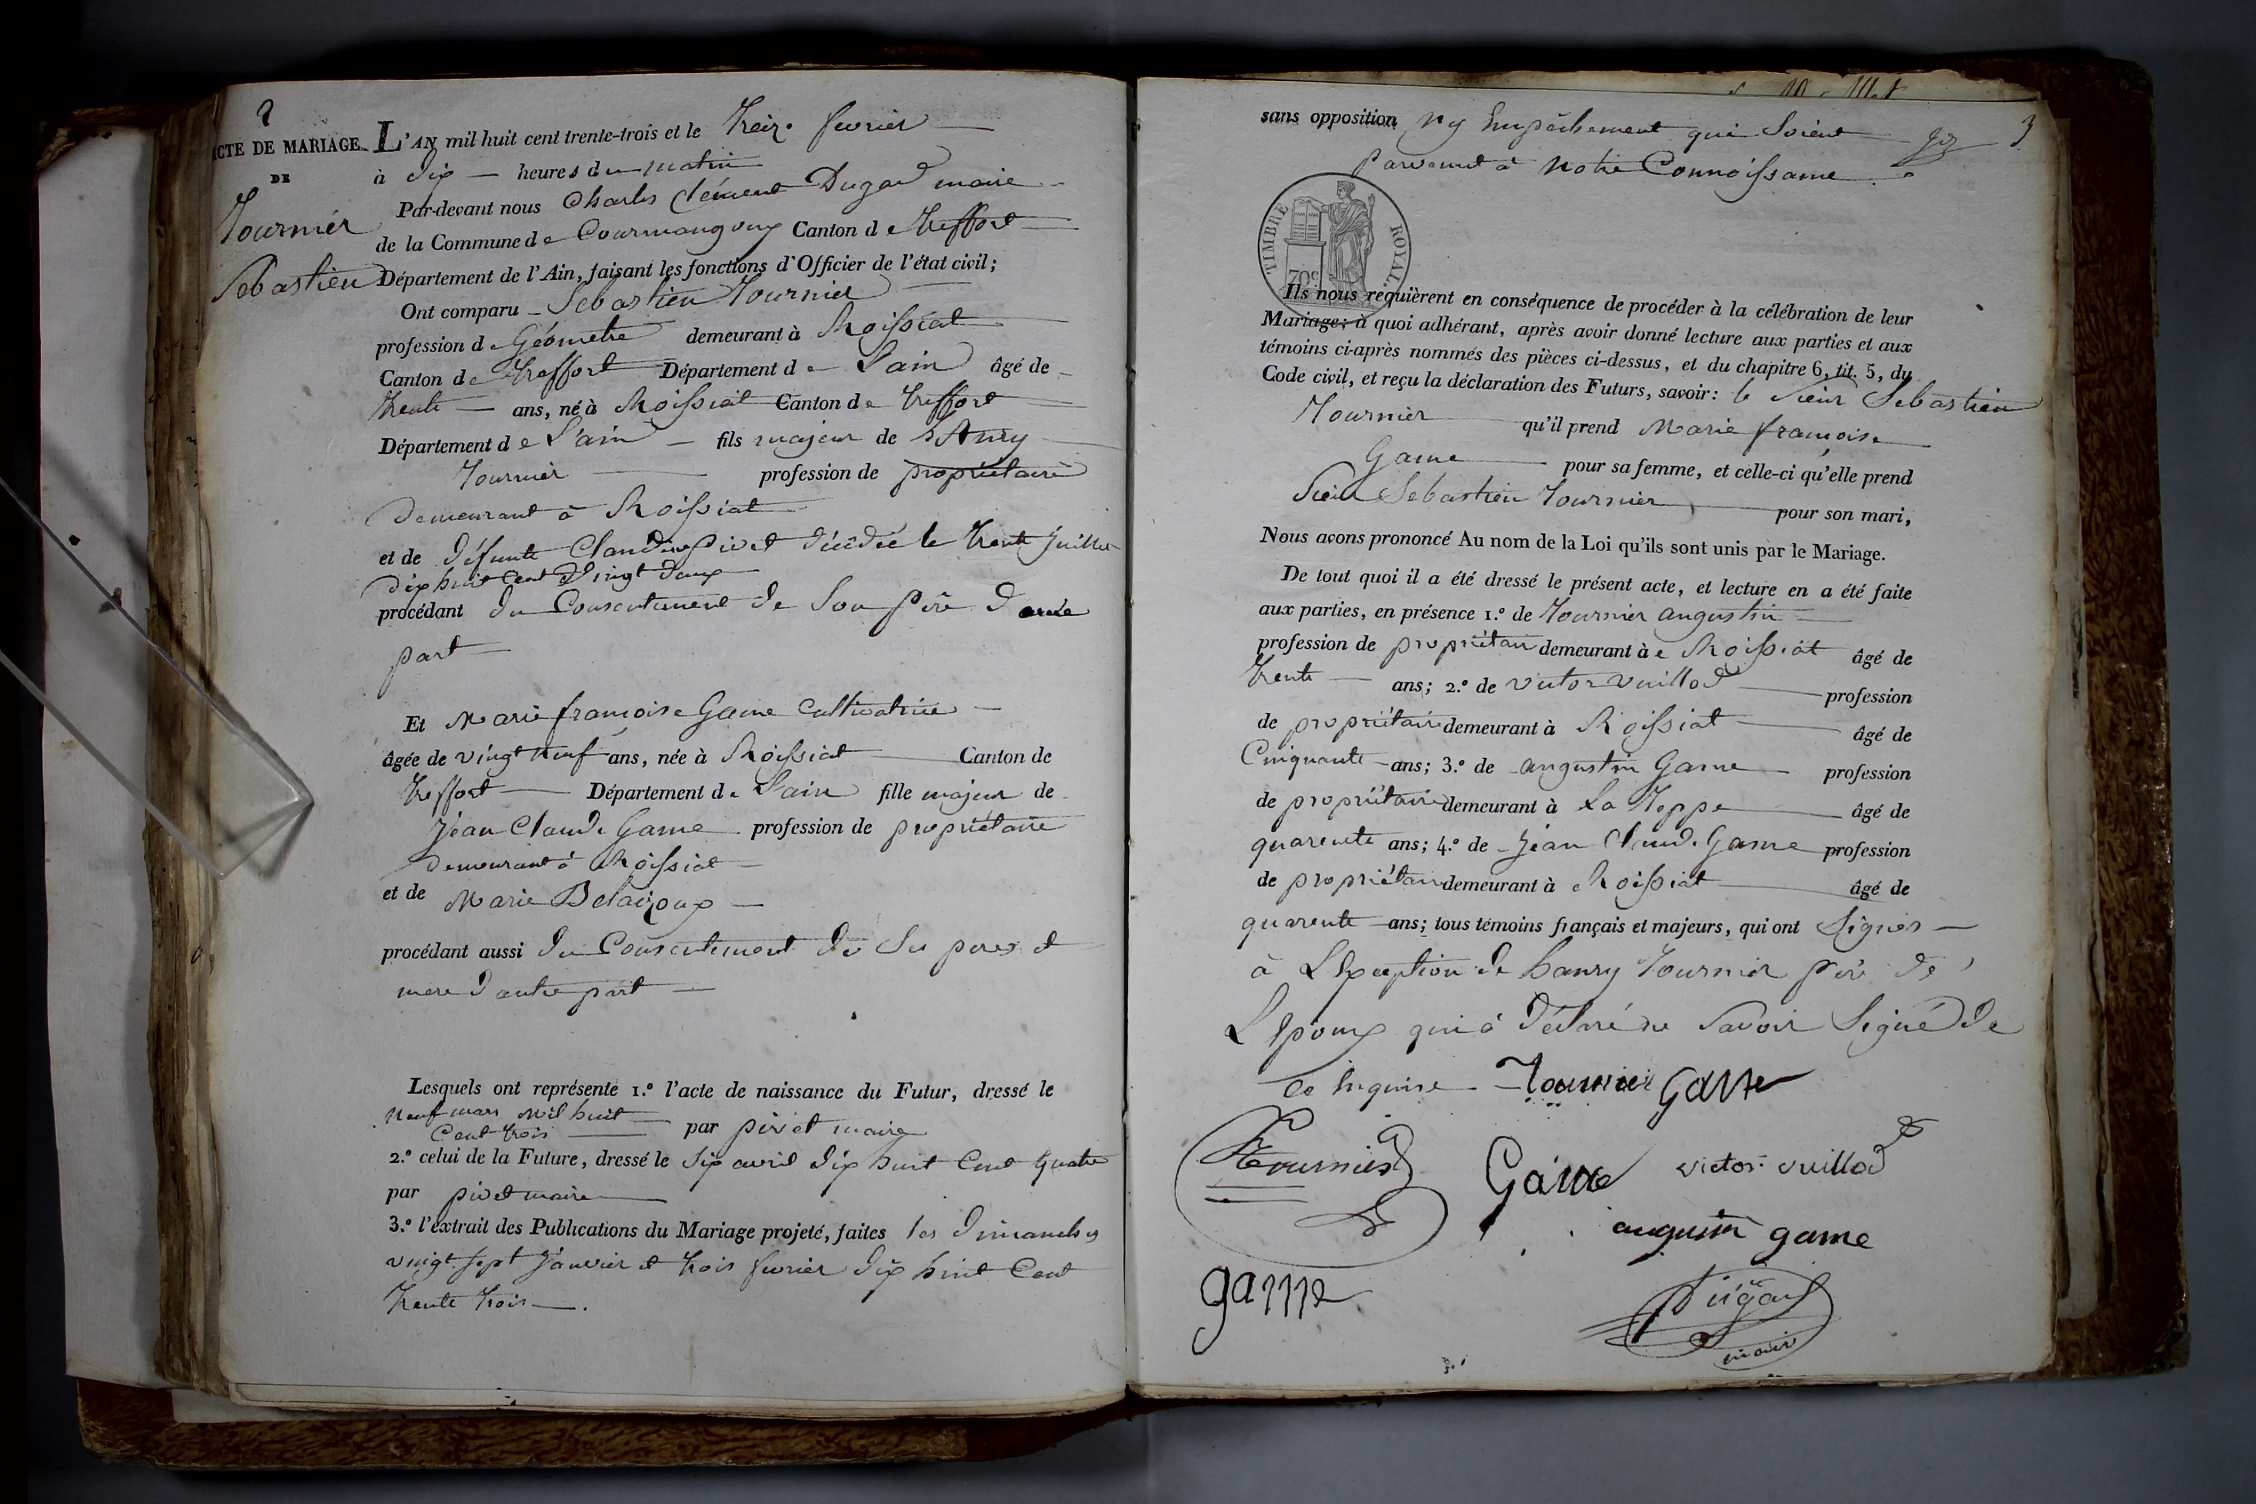 2
ACTE DE MARIAGE
DE
Tournier
Sebastien
L'AN mil huit cent trente-trois et le treize fevrier
à dix heures du matin
Par-devant nous Charles Clément Dugad maire
de la Commune de Courmangoux Canton de treffort
Département de l'Ain, faisant les fonctions d'Officier de l'état civil;
Ont comparu Sebastien Tournier
profession de Géometre demeurant à Roissiat
Canton de treffort Département de Lain âgé de
trente ans, né à Roissiat Canton de treffort
Département de L'ain fils majeur de hanry
Tournier profession de propriétaire
demeurant à Roissiat
et de défunte Claudine pivet décédée le trente juillet
dix huit Cent vingt deux
procédant du Consentement de Son pere d'une
part
Et Marie françoise Game Cultivatrice
âgée de vingt neuf ans, née à Roissiat Canton de
treffort Département de Lain fille majeur de
Jean Claude Game profession de propriétaire
demeurant à Roissiat
et de Marie
procédant aussi du Consentement de Ses peres et
mere d'autre part
Lesquels ont représenté 1.º l'acte de naissance du Futur, dressé le
neuf mars mil huit
Cent trois par pivet maire
2.º celui de la Future, dressé le Six avril dix huit Cent quatre
par pivet maire
3.º l'extrait des Publications du Mariage projeté, faites les dimanches
vingt sept Janvier et trois fevrier dix huit Cent
trente trois.
3
sans opposition ny Empêchement qui Soient
Parvenut à Notre Connoissame
TIMBRE ROYAL
70c
Ils nous requièrent en conséquence de procéder à la célébration de leur
Mariage; à quoi adhérant, après avoir donné lecture aux parties et aux
témoins ci-après nommés des pièces ci-dessus, et du chapitre 6, tit. 5, du
Code civil, et reçu la déclaration des Futurs, savoir: le Sieur Sebastien
Tournier qu'il prend Marie françoise
Game pour sa femme, et celle-ci qu'elle prend
Sieur Sebastien Tournier pour son mari,
Nous avons prononcé Au nom de la Loi qu'ils sont unis par le Mariage.
De tout quoi il a été dressé le présent acte, et lecture en a été faite
aux parties, en présence 1.º de Tournier augustin
profession de propriétaire demeurant à Roissiat âgé de
trente ans; 2.º de victor vuillod profession
de propriétaire demeurant à Roissiat âgé de
Cinquante ans; 3.º de augustin Game profession
de propriétaire demeurant à La Teppe âgé de
quarente ans; 4.º de Jean Claude Game profession
de propriétaire demeurant à Roissiat âgé de
quarente ans; tous témoins français et majeurs, qui ont Signés
à L'Exception de hanry Tournier pere de
L'Epoux qui à déclaré ne Savoir Signé de
Ce Enquise Tournier Game
Tournier Game victor vuillod
augustin game
game
Dugad
maire